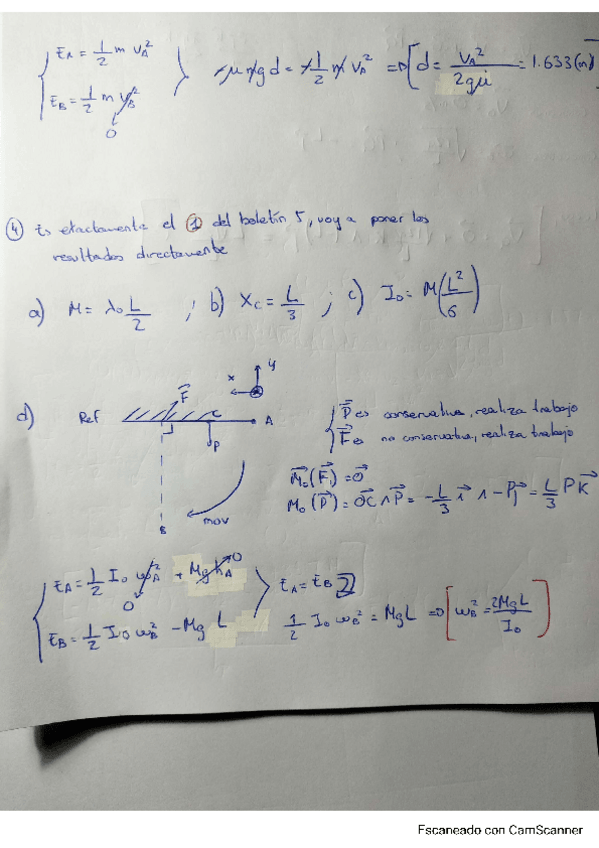 E_A = 1/2 m v_A^2
E_B = 1/2 m v_B^2
0
-μ m g d = -1/2 m v_A^2 => [d = v_A^2 / 2gμ = 1.633 (m)
④ Es exactamente el ① del boletín 5, voy a poner los
resultados directamente
a) M = λ0 L/2 ; b) X_C = L/3 ; c) I_0 = M(L^2/6)
d) Ref F C A x y
P
B
mov
P es conservativa, realiza trabajo
F es no conservativa, realiza trabajo
M_0(F) = 0
M_0(P) = OC ∧ P = -L/3 i ∧ -Pj = L/3 P K
E_A = 1/2 I_0 ω_A^2 + M g h_A 0
0
E_B = 1/2 I_0 ω_B^2 - Mg L
E_A = E_B
1/2 I_0 ω_B^2 = MgL => [ω_B^2 = 2MgL / I_0]
Escaneado con CamScanner